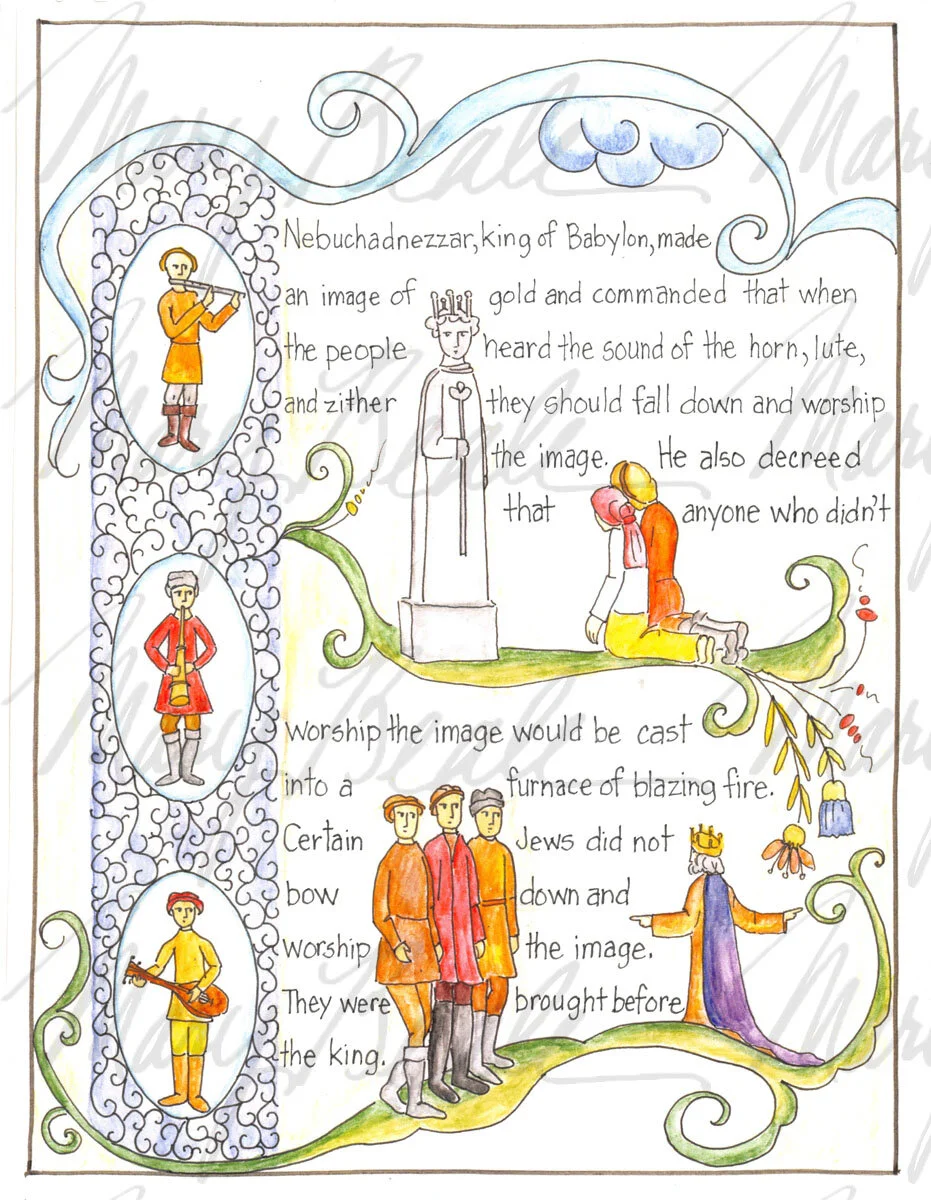 Nebuchadnezzar, king of Babylon, made
an image of gold and commanded that when
the people heard the sound of the horn, lute,
and zither they should fall down and worship
the image. He also decreed
that anyone who didn't
worship the image would be cast
into a furnace of blazing fire.
Certain Jews did not
bow down and
worship the image.
They were brought before
the king.
Mary Beale